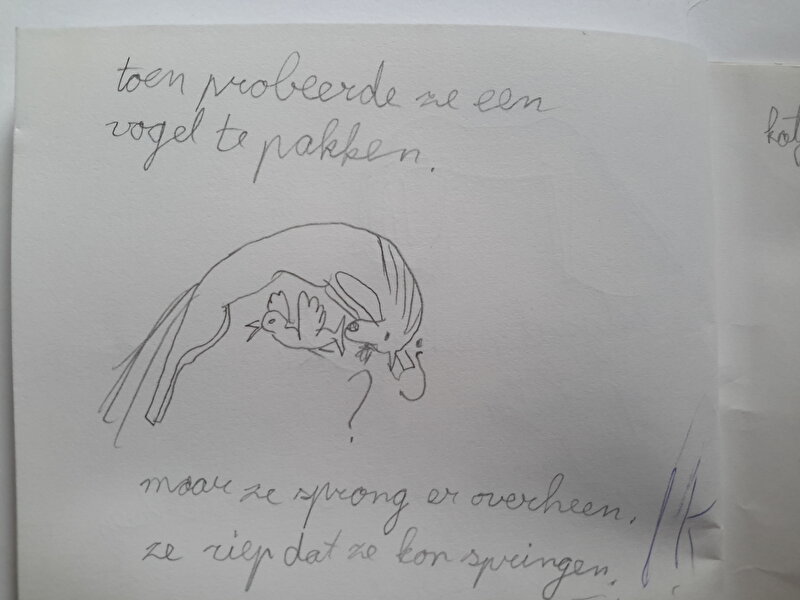 toen probeerde ze een
vogel te pakken.
?
maar ze sprong er overheen.
ze riep dat ze kon springen.